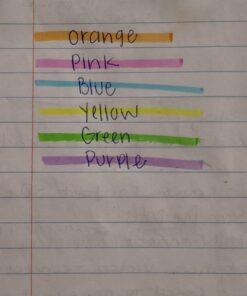 orange
Pink
Blue
Yellow
Green
Purple